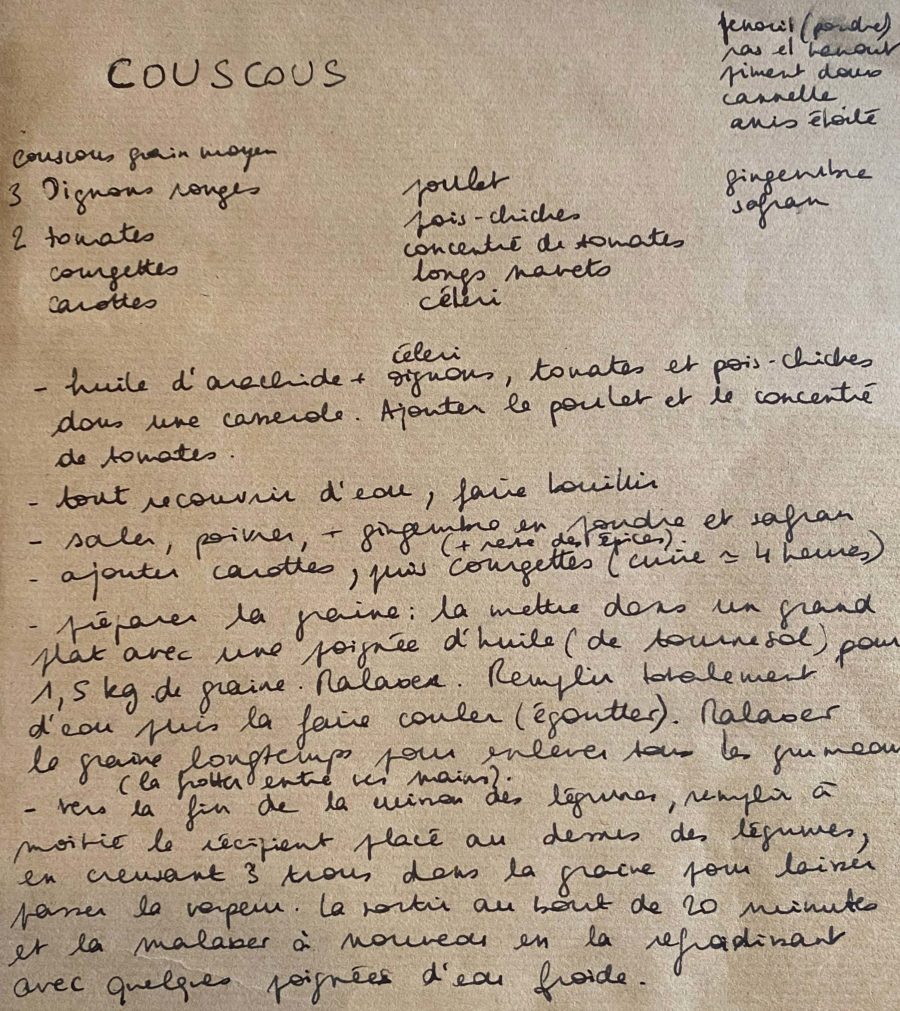 COUSCOUS
fenouil (poudre)
ras el hanout
piment doux
cannelle
anis étoilé
gingembre
safran
couscous grain moyen
3 Oignons rouges
2 tomates
courgettes
carottes
poulet
pois-chiches
concentré de tomates
longs navets
céleri
céleri
- huile d'arachide + oignons, tomates et pois-chiches
dans une casserole. Ajouter le poulet et le concentré
de tomates.
- tout recouvrir d'eau, faire bouillir
- saler, poivrer, + gingembre en poudre et safran
(+ reste des épices).
- ajouter carottes, puis courgettes (cuire ≃ 4 heures)
- préparer la graine : la mettre dans un grand
plat avec une poignée d'huile (de tournesol) pour
1,5 kg de graine. Malaxer. Remplir totalement
d'eau puis la faire couler (égoutter). Malaxer
la graine longtemps pour enlever tous les grumeau
(la frotter entre ses mains).
- vers la fin de la cuisson des légumes, remplir à
moitié le récipient placé au dessus des légumes,
en creusant 3 trous dans la graine pour laisser
passer la vapeur. La sortir au bout de 20 minutes
et la malaxer à nouveau en la refroidissant
avec quelques poignées d'eau froide.